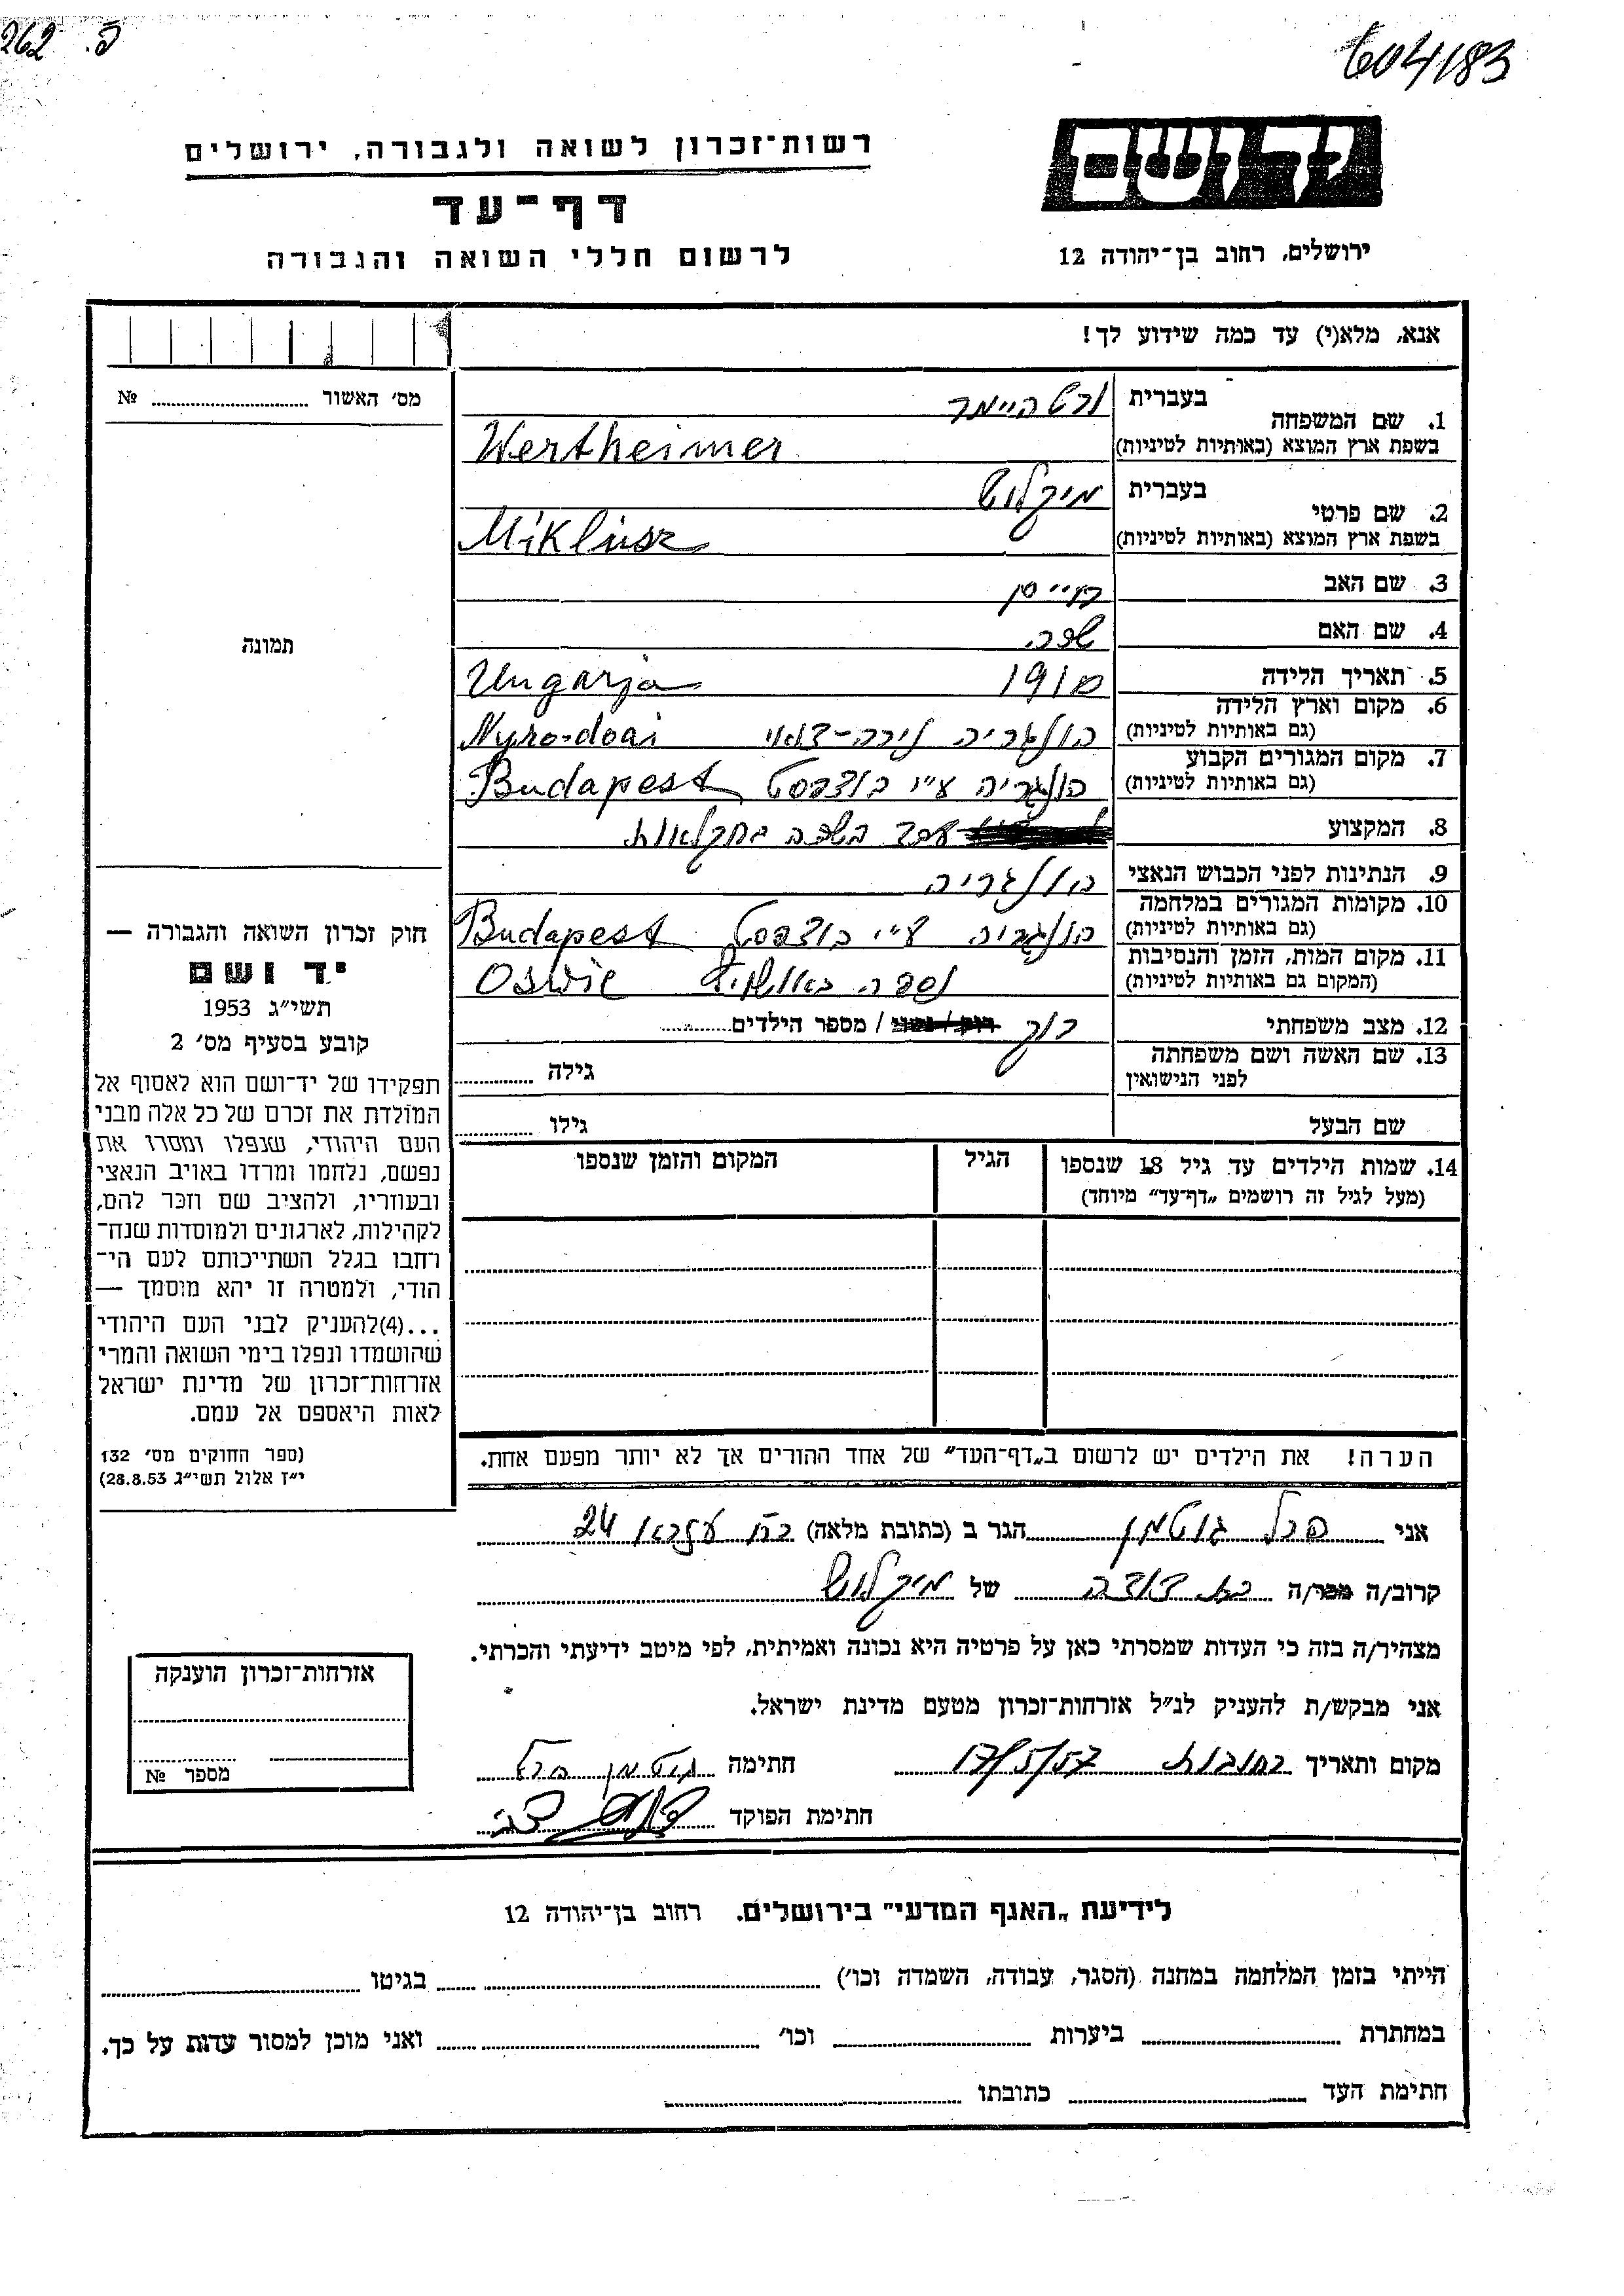 262 ה.
604183
יד ושם
רשות־זכרון לשואה ולגבורה, ירושלים
דף־עד
לרשום חללי השואה והגבורה
ירושלים, רחוב בן־יהודה 12
אנא, מלא(י) עד כמה שידוע לך!
מס׳ האשור № 
תמונה
1. שם המשפחה
בעברית ורטהיימר
בשפת ארץ המוצא (באותיות לטיניות) Wertheimer
2. שם פרטי
בעברית מיקלוש
בשפת ארץ המוצא (באותיות לטיניות) Miklusz
3. שם האב
4. שם האם שפרה
5. תאריך הלידה 1910 Ungarja
6. מקום וארץ הלידה
(גם באותיות לטיניות) הונגריה נירה-דואי Nyro-doai
7. מקום המגורים הקבוע
(גם באותיות לטיניות) הונגריה ע״י בודפסט Budapest
8. המקצוע עבד בשדה בחקלאות
9. הנתינות לפני הכבוש הנאצי הונגריה
10. מקומות המגורים במלחמה
(גם באותיות לטיניות) הונגריה ע״י בודפסט Budapest
11. מקום המות, הזמן והנסיבות
(המקום גם באותיות לטיניות) נספה באושויץ Oswic
12. מצב משפחתי רוק רוק/נשוי / מספר הילדים
13. שם האשה ושם משפחתה
לפני הנישואין גילה
שם הבעל גילו
14. שמות הילדים עד גיל 18 שנספו הגיל המקום והזמן שנספו
(מעל לגיל זה רושמים „דף־עד״ מיוחד)
הערה! את הילדים יש לרשום ב„דף־העד״ של אחד ההורים אך לא יותר מפעם אחת.
חוק זכרון השואה והגבורה —
יד ושם
תשי״ג 1953
קובע בסעיף מס׳ 2
תפקידו של יד־ושם הוא לאסוף אל
המולדת את זכרם של כל אלה מבני
העם היהודי, שנפלו ומסרו את
נפשם, נלחמו ומרדו באויב הנאצי
ובעוזריו, ולהציב שם וזכר להם,
לקהילות, לארגונים ולמוסדות שנח־
רחבו בגלל השתייכותם לעם הי־
הודי, ולמטרה זו יהא מוסמך —
...(4)להעניק לבני העם היהודי
שהושמדו ונפלו בימי השואה והמרי
אזרחות־זכרון של מדינת ישראל
לאות היאספם אל עמם.
(ספר החוקים מס׳ 132
י״ז אלול תשי״ג 28.8.53)
אני גוטמן הגר ב (כתובת מלאה) 24
קרוב/ה מכר/ה בת דודה של מיקלוש
מצהיר/ה בזה כי העדות שמסרתי כאן על פרטיה היא נכונה ואמיתית, לפי מיטב ידיעתי והכרתי.
אני מבקש/ת להעניק לנ״ל אזרחות־זכרון מטעם מדינת ישראל.
מקום ותאריך רחובות 17/5/57 חתימה גוטמן
חתימת הפוקד
אזרחות־זכרון הוענקה
מספר №
לידיעת „האגף המדעי״ בירושלים. רחוב בן־יהודה 12
הייתי בזמן המלחמה במחנה (הסגר, עבודה, השמדה וכו׳) בגיטו
במחתרת ביערות וכו׳ ואני מוכן למסור עדות על כך.
חתימת העד כתובתו